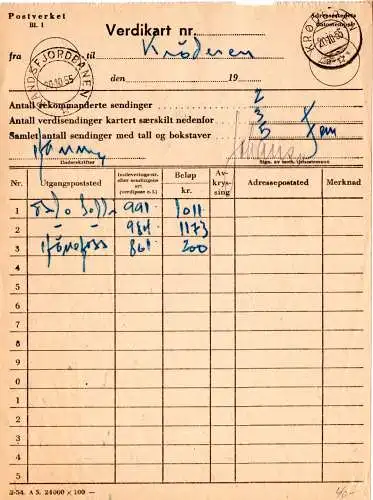 Postverket
Bl. 1
Verdikart nr.
fra til Krøderen
den 19
RANDSFJORDBANEN
20.10.55
KRØDEREN
20-10-55
Antall rekommanderte sendinger 2
Antall verdisendinger kartert særskilt nedenfor 3
Samlet antall sendinger med tall og bokstaver 5 fem
Underskrifter
Nr. Utgangspoststed Innleveringsnr. eller sendingens art (verdipose o.l.) Beløp kr. Av-krys-sing Adressepoststed Merknad
1 991 1011
2 — " — 984 1173
3 Hønefoss 861 200
4
5
6
7
8
9
0
1
2
3
4
5
2-54. A S. 24000 × 100 —